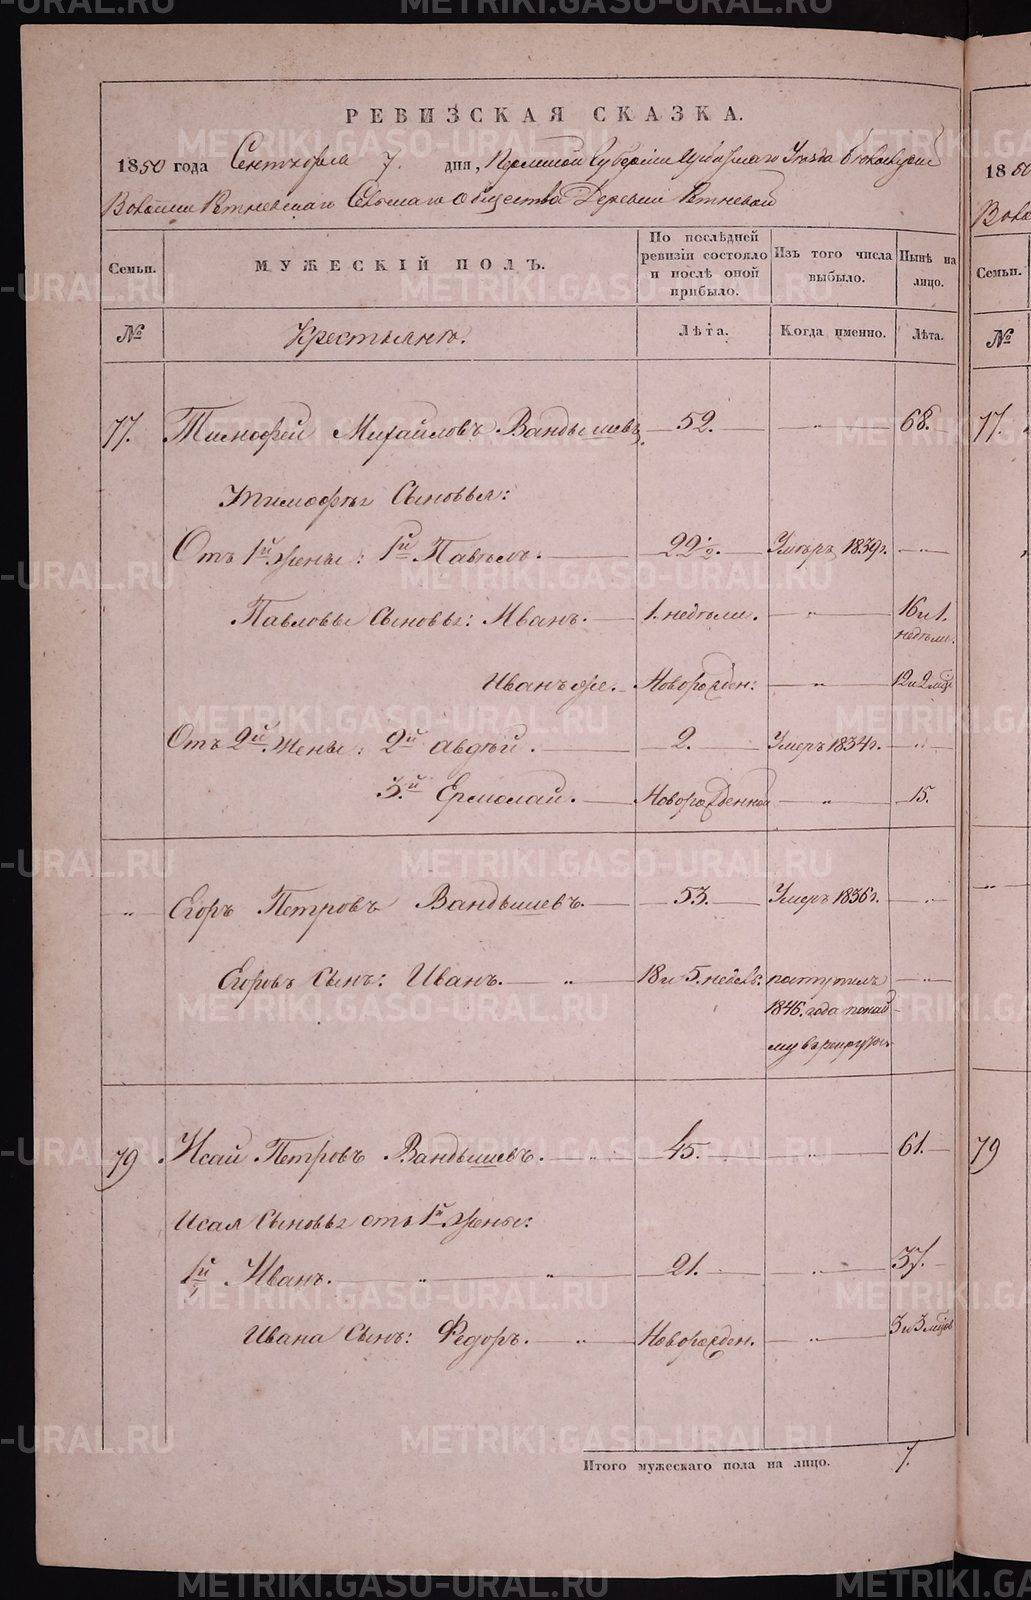 METRIKI.GASO-URAL.RU
РЕВИЗСКАЯ СКАЗКА.
1850 года Сентября 7. дня, Пермской Губернии Ирбитскаго Уезда
Волости Ретневскаго Сельскаго общества Деревни Ретневой
Семьи.
МУЖЕСКІЙ ПОЛЪ.
По последней ревизіи состояло и после оной прибыло.
Изъ того числа выбыло.
Ныне на лицо.
№
Крестьяне.
Лѣта.
Когда именно.
Лѣта.
77. Тимофей Михайловъ Вандышевъ. 52. „ 68.
Тимофея Сыновья:
Отъ 1й жены: 1й Павелъ. 22½. Умеръ 1839г. „
Павловы Сыновья: Иванъ. 1. недели. „ 16 и 1. недели.
Иванъ же. Новорожден: „ 12 и 2 мѣс
Отъ 2й жены: 2й Авдѣй. 2. Умеръ 1834г. „
3й Ермолай. Новорожденной „ 15.
„ Егоръ Петровъ Вандышевъ. 53. Умеръ 1836г. „
Егоровъ Сынъ: Иванъ. „ 18 и 5. недель: поступилъ „
1846. года по най
му в рекруты
79. Исай Петровъ Вандышевъ. „ 45. „ 61.
Исая Сыновья отъ 1й жены:
1й Иванъ. „ „ 21. „ 37.
Ивана Сынъ: Федоръ. „ Новорожден. „ 3 и 3 мѣсяц
Итого мужескаго пола на лицо. 7.
1850
Воло
Семьи.
№
77.
„
79